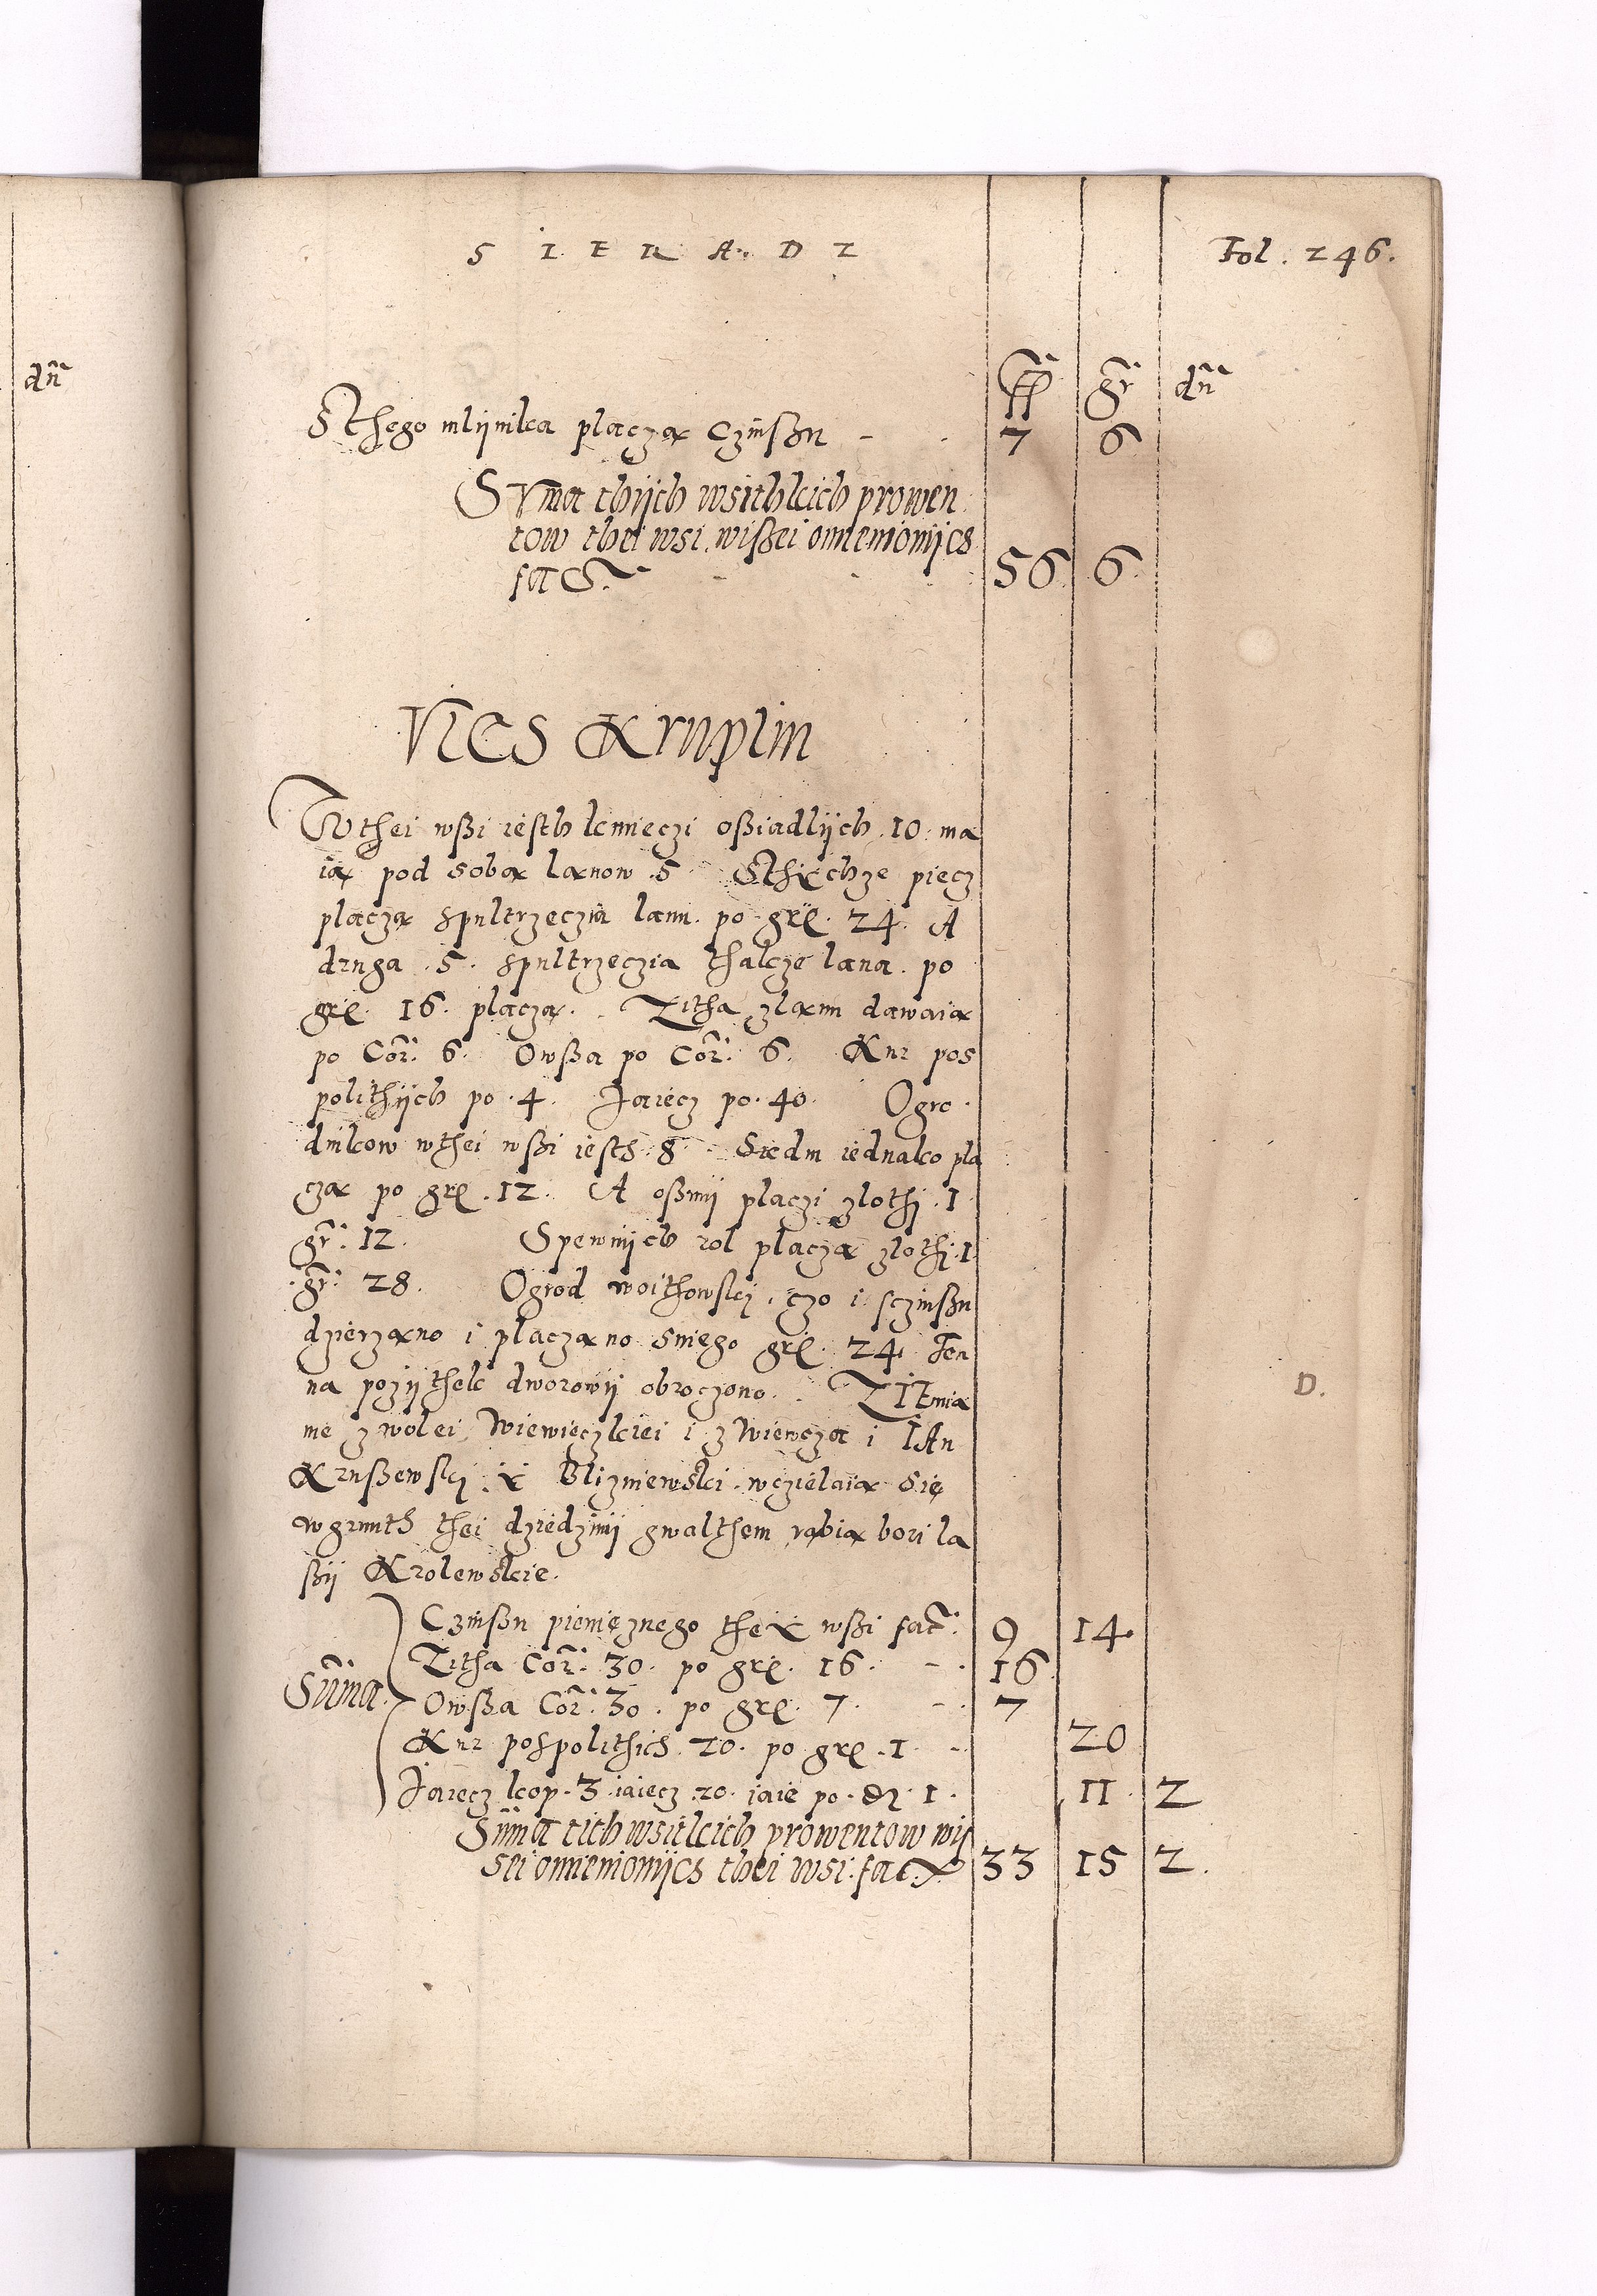 dn̄
S I E R A D Z
Fol. 246.
ff gr dn̄
Sthego mlijnika placzą Czinßu - . 7 6
Summa thijch wsithkich prowen
tow thei wsi wißei omieniomijch
facit 56 6
VIES Kruplin
W thei wßi iesth kmieczi oßiadlijch 10 ma
ią pod sobą lanow 5 Sthijchże piecz
placzą spultrzeczia lanu po grͣ. 24. A
druga .5. spultrzeczia thakze lana po
grͣ. 16. placzą. Zitha zlanu dawaią
po Cor: 6. Owßa po Cor: 6. Kur pos
polithijch po .4. Jaiecz po. 40. Ogro
dnikow wthei wßi iesth .8. Siedm iednako pla
czą po grͣ. 12. A osmij placzi zlothi .1
gr: 12. Spewnijch rol placzą zlothi .1.
gr: 28. Ogrod woithowski, czo i sczinßu
dzierzano i placzano sniego grͣ. 24. Ten
na pozijthek dworowij obroczono. Ziemia
nie zwolei Wiewieczkiei i z Wiewcza i IAn
Krußewski i Blizniewski wczielaią sie
wgrunth thei dziedzinij gwalthem rąbią bori la
ßij Krolewskie.
D.
Summa
Czinßu pienięznego thei wßi fac: 9 14.
Zitha Cor: 30. po grͣ. 16. - . 16
Owßa Cor: 30. po grͣ. 7. - . 7
Kur pospolithich 20. po grͣ. 1 - 20
Jaiecz kop. 3 iaiecz 20. iaie po. 1. 11. 2
Summa tich wsitkich prowentow wis
sei omieniomijch thei wsi. fac. 33 15 2.